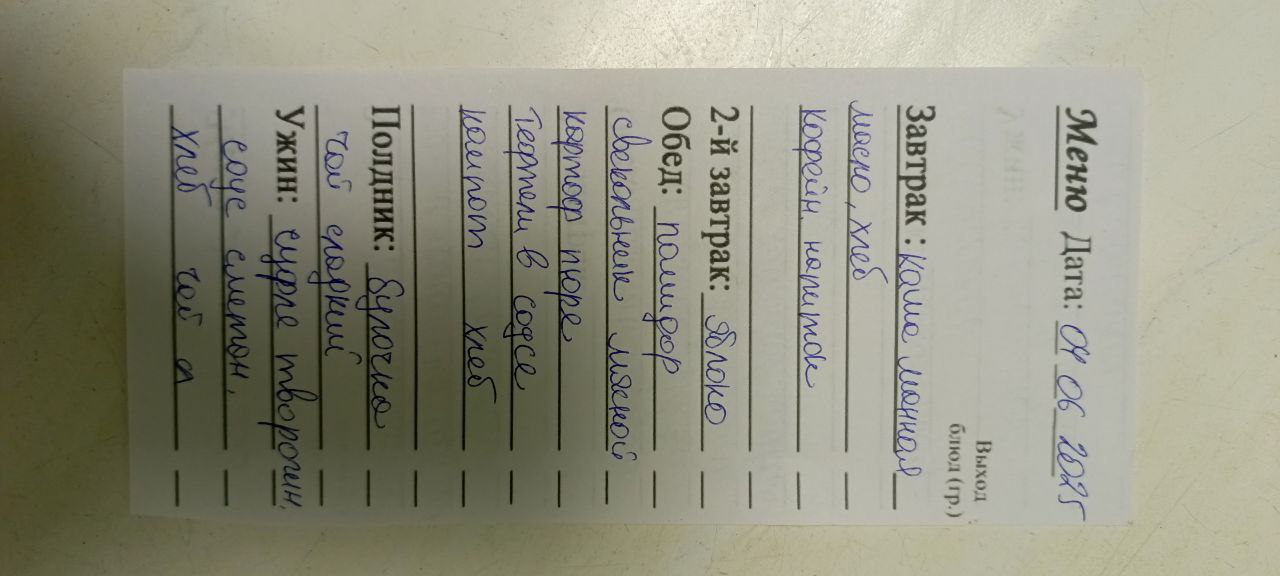 Меню Дата: 04 06 2025
Выход
блюд (гр.)
Завтрак : каша манная
масло, хлеб
кофейн. напиток
2-й завтрак: яблоко
Обед: помидор
свекольник мясной
картоф пюре
Тефтели в соусе
компот хлеб
Полдник: булочка
чай сладкий
Ужин: суфле творожн.
соус сметан.
хлеб чай